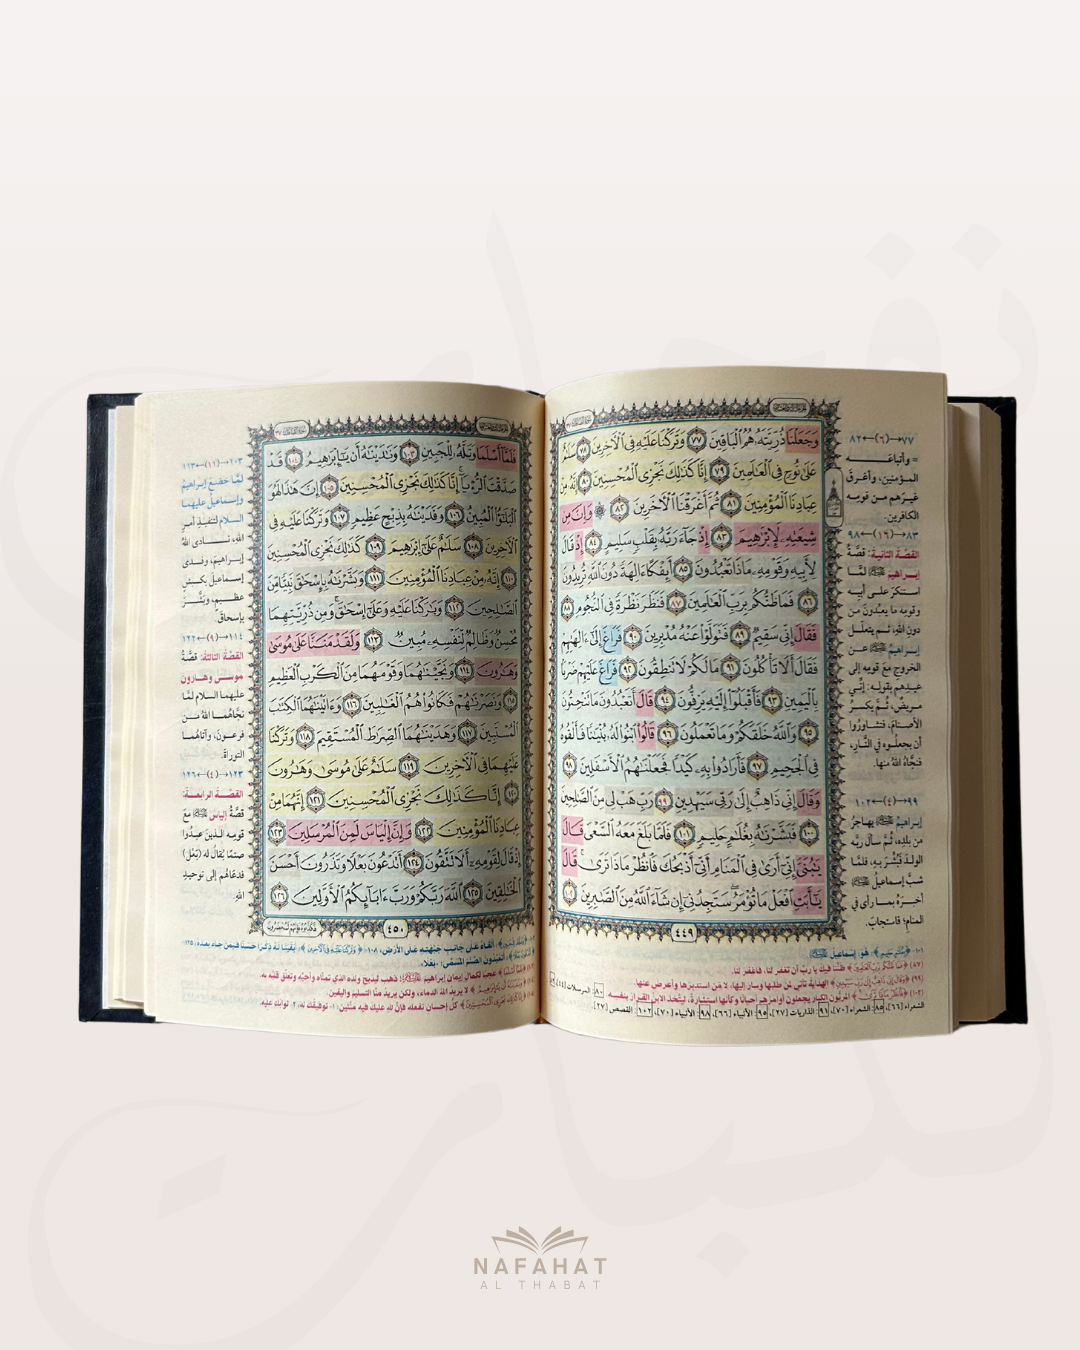 وَجَعَلْنَا ذُرِّيَّتَهُۥ هُمُ ٱلْبَاقِينَ ٧٧ وَتَرَكْنَا عَلَيْهِ فِى ٱلْآخِرِينَ ٧٨ سَلَٰمٌ
عَلَىٰ نُوحٍ فِى ٱلْعَٰلَمِينَ ٧٩ إِنَّا كَذَٰلِكَ نَجْزِى ٱلْمُحْسِنِينَ ٨٠ إِنَّهُۥ مِنْ
عِبَادِنَا ٱلْمُؤْمِنِينَ ٨١ ثُمَّ أَغْرَقْنَا ٱلْآخَرِينَ ٨٢ ۞ وَإِنَّ مِن
شِيعَتِهِۦ لَإِبْرَٰهِيمَ ٨٣ إِذْ جَآءَ رَبَّهُۥ بِقَلْبٍ سَلِيمٍ ٨٤ إِذْ قَالَ
لِأَبِيهِ وَقَوْمِهِۦ مَاذَا تَعْبُدُونَ ٨٥ أَئِفْكًا ءَالِهَةً دُونَ ٱللَّهِ تُرِيدُونَ
٨٦ فَمَا ظَنُّكُم بِرَبِّ ٱلْعَٰلَمِينَ ٨٧ فَنَظَرَ نَظْرَةً فِى ٱلنُّجُومِ ٨٨
فَقَالَ إِنِّى سَقِيمٌ ٨٩ فَتَوَلَّوْا۟ عَنْهُ مُدْبِرِينَ ٩٠ فَرَاغَ إِلَىٰٓ ءَالِهَتِهِمْ
فَقَالَ أَلَا تَأْكُلُونَ ٩١ مَا لَكُمْ لَا تَنطِقُونَ ٩٢ فَرَاغَ عَلَيْهِمْ ضَرْبًۢا
بِٱلْيَمِينِ ٩٣ فَأَقْبَلُوٓا۟ إِلَيْهِ يَزِفُّونَ ٩٤ قَالَ أَتَعْبُدُونَ مَا تَنْحِتُونَ
٩٥ وَٱللَّهُ خَلَقَكُمْ وَمَا تَعْمَلُونَ ٩٦ قَالُوا۟ ٱبْنُوا۟ لَهُۥ بُنْيَٰنًا فَأَلْقُوهُ
فِى ٱلْجَحِيمِ ٩٧ فَأَرَادُوا۟ بِهِۦ كَيْدًا فَجَعَلْنَٰهُمُ ٱلْأَسْفَلِينَ ٩٨
وَقَالَ إِنِّى ذَاهِبٌ إِلَىٰ رَبِّى سَيَهْدِينِ ٩٩ رَبِّ هَبْ لِى مِنَ ٱلصَّٰلِحِينَ
١٠٠ فَبَشَّرْنَٰهُ بِغُلَٰمٍ حَلِيمٍ ١٠١ فَلَمَّا بَلَغَ مَعَهُ ٱلسَّعْىَ قَالَ
يَٰبُنَىَّ إِنِّىٓ أَرَىٰ فِى ٱلْمَنَامِ أَنِّىٓ أَذْبَحُكَ فَٱنظُرْ مَاذَا تَرَىٰ قَالَ
يَٰٓأَبَتِ ٱفْعَلْ مَا تُؤْمَرُ سَتَجِدُنِىٓ إِن شَآءَ ٱللَّهُ مِنَ ٱلصَّٰبِرِينَ ١٠٢
٤٤٩
٧٧←(٦)→٨٢
= وأتباعَه
المؤمنين، وأغرقَ
غيرَهم من قومِه
الكافرين.
٨٣←(١٦)→٩٨
القصّةُ الثانيةُ: قصّةُ
إبراهيمَ ﷺ لمَّا
استنكرَ على أبيه
وقومِه ما يعبُدونَ من
دونِ اللهِ، ثُم يتعلَّل
إبراهيمُ ﷺ عن
الخروجِ مع قومِه إلى
عيدِهم بقولِه: إنِّي
مريضٌ، ثُم يكسرُ
الأصنامَ، فتشاوروا
أن يجعلُوه في النَّارِ،
فنجَّاهُ اللهُ منها.
٩٩←(٤)→١٠٢
إبراهيمُ ﷺ يهاجرُ
من بلدِه، ثُم سألَ ربَّه
الولدَ فبُشِّرَ به، فلمَّا
شبَّ إسماعيلُ ﷺ
أخبرَهُ بما رأى في
المنامِ؛ فاستجابَ.
فَلَمَّآ أَسْلَمَا وَتَلَّهُۥ لِلْجَبِينِ ١٠٣ وَنَٰدَيْنَٰهُ أَن يَٰٓإِبْرَٰهِيمُ ١٠٤ قَدْ
صَدَّقْتَ ٱلرُّءْيَآ إِنَّا كَذَٰلِكَ نَجْزِى ٱلْمُحْسِنِينَ ١٠٥ إِنَّ هَٰذَا لَهُوَ
ٱلْبَلَٰٓؤُا۟ ٱلْمُبِينُ ١٠٦ وَفَدَيْنَٰهُ بِذِبْحٍ عَظِيمٍ ١٠٧ وَتَرَكْنَا عَلَيْهِ فِى
ٱلْآخِرِينَ ١٠٨ سَلَٰمٌ عَلَىٰٓ إِبْرَٰهِيمَ ١٠٩ كَذَٰلِكَ نَجْزِى ٱلْمُحْسِنِينَ
١١٠ إِنَّهُۥ مِنْ عِبَادِنَا ٱلْمُؤْمِنِينَ ١١١ وَبَشَّرْنَٰهُ بِإِسْحَٰقَ نَبِيًّا مِّنَ
ٱلصَّٰلِحِينَ ١١٢ وَبَٰرَكْنَا عَلَيْهِ وَعَلَىٰٓ إِسْحَٰقَ وَمِن ذُرِّيَّتِهِمَا
مُحْسِنٌ وَظَالِمٌ لِّنَفْسِهِۦ مُبِينٌ ١١٣ وَلَقَدْ مَنَنَّا عَلَىٰ مُوسَىٰ
وَهَٰرُونَ ١١٤ وَنَجَّيْنَٰهُمَا وَقَوْمَهُمَا مِنَ ٱلْكَرْبِ ٱلْعَظِيمِ
١١٥ وَنَصَرْنَٰهُمْ فَكَانُوا۟ هُمُ ٱلْغَٰلِبِينَ ١١٦ وَءَاتَيْنَٰهُمَا ٱلْكِتَٰبَ
ٱلْمُسْتَبِينَ ١١٧ وَهَدَيْنَٰهُمَا ٱلصِّرَٰطَ ٱلْمُسْتَقِيمَ ١١٨ وَتَرَكْنَا
عَلَيْهِمَا فِى ٱلْآخِرِينَ ١١٩ سَلَٰمٌ عَلَىٰ مُوسَىٰ وَهَٰرُونَ
١٢٠ إِنَّا كَذَٰلِكَ نَجْزِى ٱلْمُحْسِنِينَ ١٢١ إِنَّهُمَا مِنْ
عِبَادِنَا ٱلْمُؤْمِنِينَ ١٢٢ وَإِنَّ إِلْيَاسَ لَمِنَ ٱلْمُرْسَلِينَ ١٢٣
إِذْ قَالَ لِقَوْمِهِۦٓ أَلَا تَتَّقُونَ ١٢٤ أَتَدْعُونَ بَعْلًا وَتَذَرُونَ أَحْسَنَ
ٱلْخَٰلِقِينَ ١٢٥ ٱللَّهَ رَبَّكُمْ وَرَبَّ ءَابَآئِكُمُ ٱلْأَوَّلِينَ ١٢٦
٤٥٠
١٠٣←(١١)→١١٣
لمَّا خضعَ إبراهيمُ
وإسماعيلُ عليهما
السلام لتنفيذِ أمرِ
اللهِ، نادى اللهُ
إبراهيمَ، وفدى
إسماعيلَ بكبشٍ
عظيمٍ، وبشَّرَ
بإسحاقَ.
١١٤←(٩)→١٢٢
القصّةُ الثالثةُ: قصّةُ
موسى وهارون
عليهما السلام لمَّا
نجّاهُما اللهُ من
فرعونَ، وآتاهُما
التوراةَ.
١٢٣←(٤)→١٢٦
القصّةُ الرابعةُ:
قصّةُ إلياسَ ﷺ معَ
قومِه الذينَ عبدُوا
صنمًا يُقالُ له (بَعْل)
فدعاهُم إلى توحيدِ
اللهِ.
NAFAHAT
AL THABAT